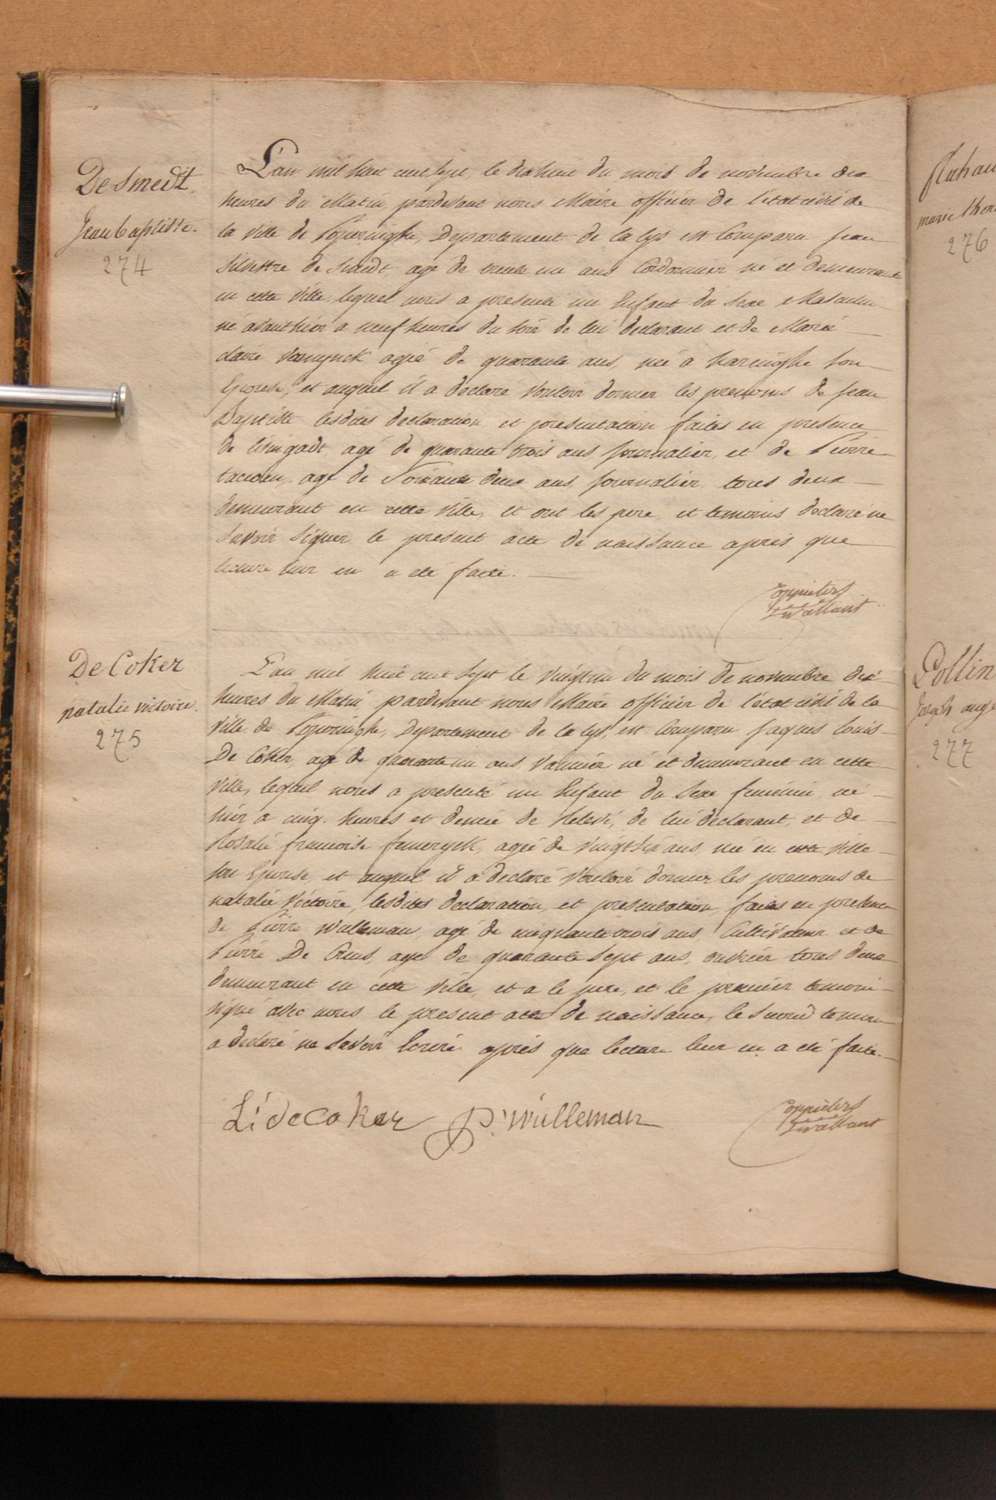 De Smedt
Jean baptiste.
274
L'an mil huit cent sept, le dixhuit du mois de novembre dix
heures du Matin pardevant nous Maire officier de l'état civil de
la ville de Poperinghe, Departement de la Lys est Comparu Jean
Silvestre de Smedt agé de trente un ans Cordonnier né et demeurant
en cette ville, lequel nous a presenté un Enfant du Sexe Masculin
né avanthier a neuf heures du soir de lui declarant et de Marie
claire agée de quarante ans, née a haringhe son
Epouse, et auquel il a declaré vouloir donner les prenoms de Jean
Baptiste lesdites declaration et presentation faites en presence
de agé de quarante trois ans journalier, et de Pierre
agé de Soixante deux ans journalier tous deux
demeurant en cette ville, et ont les pere et temoins declaré ne
Savoir Signer le present acte de naissance après que
lecture leur en a eté faite.
De Coker
natalie victoire.
275
L'an mil huit cent Sept le vingt un du mois de novembre dix
heures du Matin pardevant nous Maire officier de l'état civil de la
ville de Poperinghe, Departement de la Lys est Comparu Jaques Louis
De Coker agé de quarante un ans Vannier né et demeurant en cette
ville, lequel nous a presenté un Enfant du Sexe feminin, né
hier a cinq heures et demie de relevé, de lui declarant, et de
Rosalie francoise agée de vingt six ans née en cette ville
son Epouse et auquel il a declaré vouloir donner les prenoms de
natalie Victoire, lesdites declaration et presentation faites en presence
de Pierre Wulleman agé de cinquante trois ans, Cultivateur et de
Pierre De agé de quarante Sept ans, ouvrier tous deux
demeurant en cette ville, et a le pere, et le premier temoin
signé avec nous le present acte de naissance, le Second temoin
a declaré ne Savoir Ecrire après que lecture leur en a eté faite.
L: de coker P. Wulleman
marie
276
Pollin
277